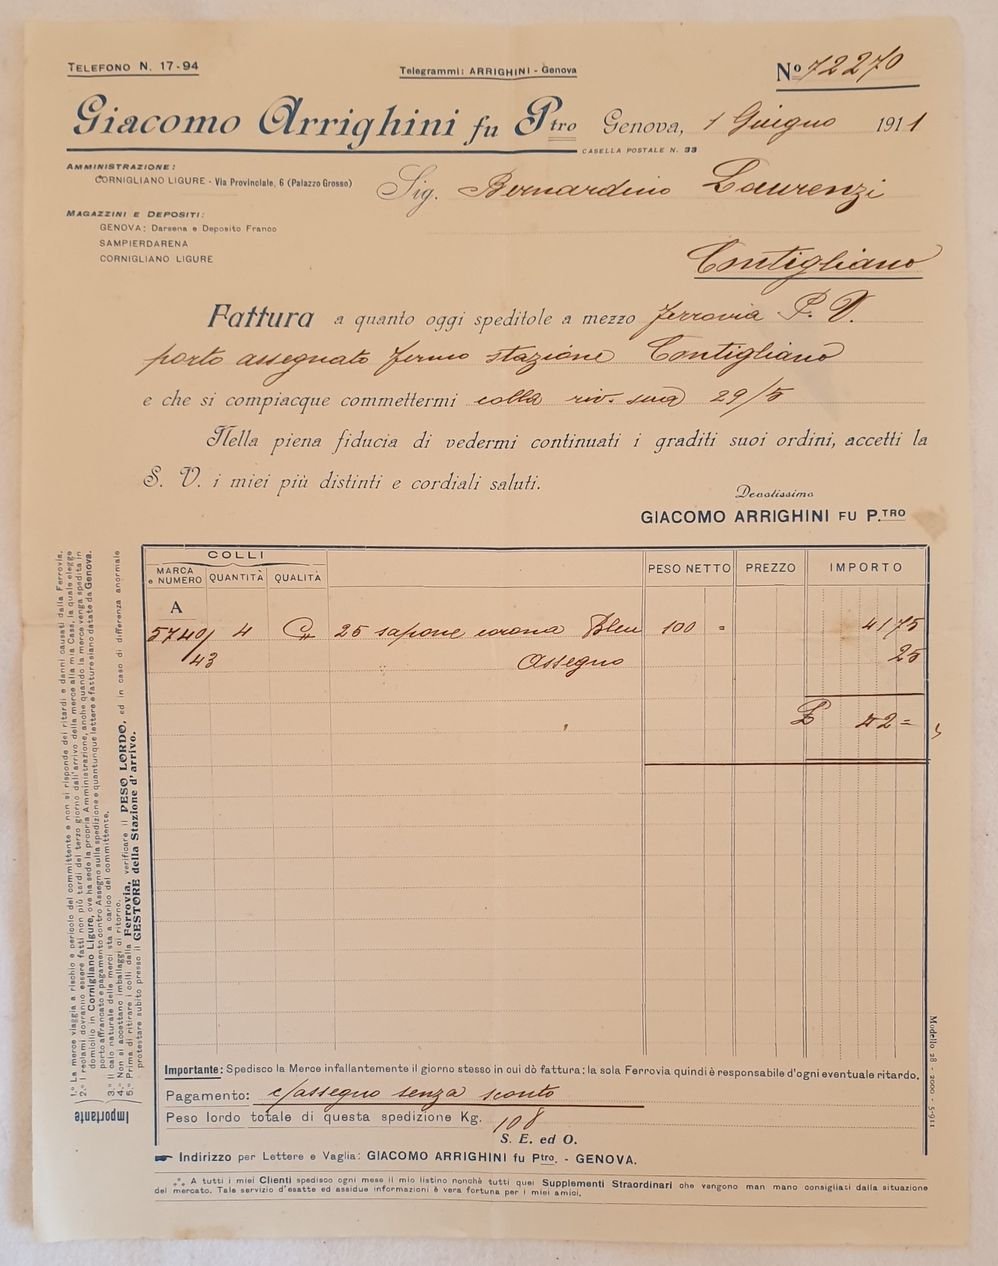 TELEFONO N. 17-94
Telegrammi: ARRIGHINI - Genova
Nº 72270
Giacomo Arrighini fu Ptro
Genova, 1 Giugno 1911
CASELLA POSTALE N. 33
AMMINISTRAZIONE:
CORNIGLIANO LIGURE - Via Provinciale, 6 (Palazzo Grosso)
Sig. Bernardino Laurenzi
MAGAZZINI E DEPOSITI:
GENOVA: Darsena e Deposito Franco
SAMPIERDARENA
CORNIGLIANO LIGURE
Contigliano
Fattura a quanto oggi speditole a mezzo ferrovia P. V.
porto assegnato fermo stazione Contigliano
e che si compiacque commettermi colla riv. sua 29/5
Nella piena fiducia di vedermi continuati i graditi suoi ordini, accetti la
S. V. i miei più distinti e cordiali saluti.
Devotissimo
GIACOMO ARRIGHINI FU P.TRO
COLLI
MARCA e NUMERO QUANTITÀ QUALITÀ PESO NETTO PREZZO IMPORTO
A
5740/ 4 25 sapone corona Bleu 100 = 41 75
43 Assegno 25
£ 42 =
Importante
1.º La merce viaggia a rischio e pericolo del committente e non si risponde dei ritardi e danni causati dalla Ferrovia.
2.º I reclami dovranno essere fatti non più tardi del terzo giorno dall'arrivo della merce alla mia Casa, la quale elegge
domicilio in Cornigliano Ligure, ove ha sede la propria Amministrazione, anche quando la merce venga spedita in
porto affrancato e pagamento contro Assegno sulla spedizione e quantunque lettere e fatture siano datate da Genova.
3.º Il calo naturale delle merci sta a carico del committente.
4.º Non si accettano imballaggi di ritorno.
5.º Prima di ritirare i colli dalla Ferrovia, verificare il PESO LORDO, ed in caso di differenza anormale
protestare subito presso il GESTORE della Stazione d'arrivo.
Modello 28 - 2000 - 5-911
Importante: Spedisco la Merce infallantemente il giorno stesso in cui dò fattura: la sola Ferrovia quindi è responsabile d'ogni eventuale ritardo.
Pagamento: c/assegno senza sconto
Peso lordo totale di questa spedizione Kg. 108
S. E. ed O.
Indirizzo per Lettere e Vaglia: GIACOMO ARRIGHINI fu Ptro. - GENOVA.
A tutti i miei Clienti spedisco ogni mese il mio listino nonchè tutti quei Supplementi Straordinari che vengono man mano consigliati dalla situazione
del mercato. Tale servizio d'esatte ed assidue informazioni è vera fortuna per i miei amici.